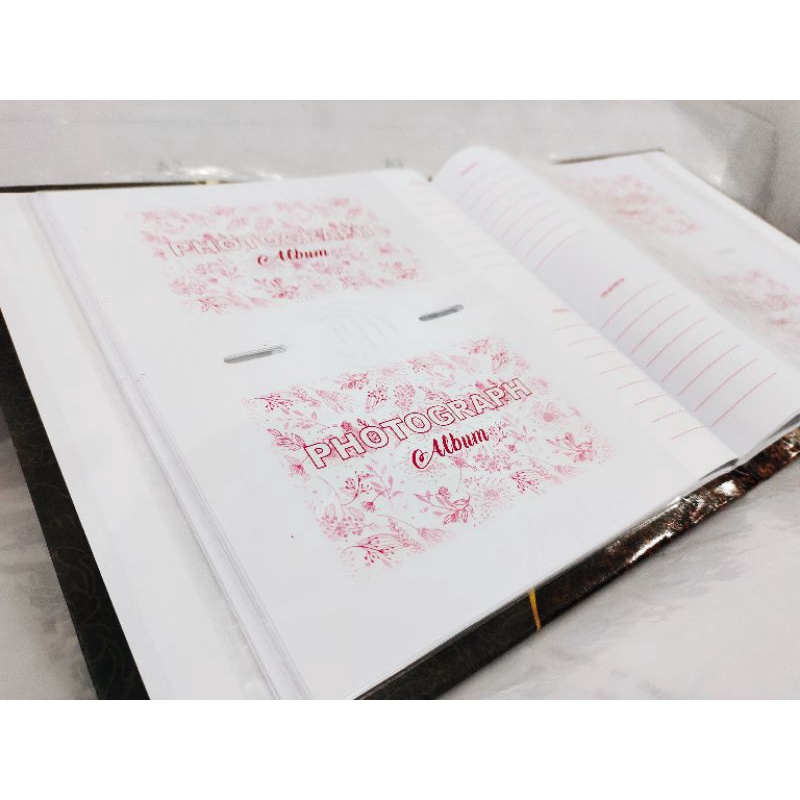 PHOTOGRAPH
Album
PHOTOGRAPH
Album